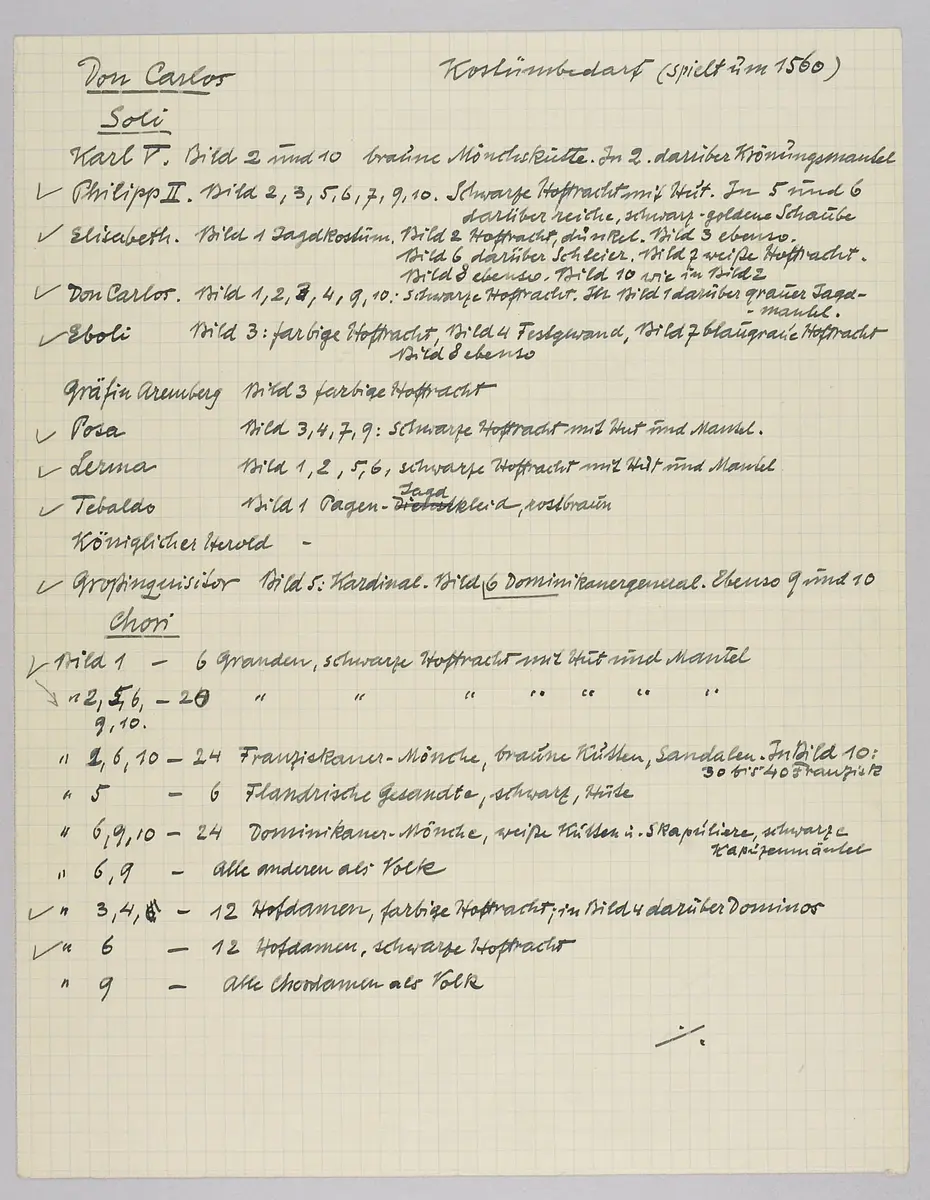 Don Carlos Kostümbedarf (spielt um 1560)
Soli
Karl V. Bild 2 und 10 braune Mönchskutte. In 2. darüber Krönungsmantel
✓ Philipp II. Bild 2, 3, 5, 6, 7, 9, 10. Schwarze Hoftracht mit Hut. In 5 und 6
darüber reiche, schwarz-goldene Schaube
✓ Elisabeth. Bild 1 Jagdkostüm, Bild 2 Hoftracht, dunkel. Bild 3 ebenso.
Bild 6 darüber Schleier. Bild 7 weiße Hoftracht.
Bild 8 ebenso. Bild 10 wie in Bild 2
✓ Don Carlos. Bild 1, 2, 3, 4, 9, 10.: Schwarze Hoftracht. In Bild 1 darüber grauer Jagd-
-mantel.
✓ Eboli Bild 3: farbige Hoftracht, Bild 4 Festgewand, Bild 7 blaugraue Hoftracht
Bild 8 ebenso
Gräfin Aremberg Bild 3 farbige Hoftracht
✓ Posa Bild 3, 4, 7, 9: schwarze Hoftracht mit Hut und Mantel.
✓ Lerma Bild 1, 2, 5, 6, schwarze Hoftracht mit Hut und Mantel
Jagd
✓ Tebaldo Bild 1 Pagen-kleid, rostbraun
Königlicher Herold -
✓ Großinquisitor Bild 5: Kardinal. Bild 6 Dominikanergeneral. Ebenso 9 und 10
Chori
✓ Bild 1 – 6 Granden, schwarze Hoftracht mit Hut und Mantel
" 2, 5, 6, – 20 " " " " " " "
9, 10.
" 2, 6, 10 – 24 Franziskaner-Mönche, braune Kutten, Sandalen. In Bild 10:
30 bis 40 Franzisk
" 5 – 6 Flandrische Gesandte, schwarz, Hüte
" 6, 9, 10 – 24 Dominikaner-Mönche, weiße Kutten u. Skapuliere, schwarze
Kapuzenmäntel
" 6, 9 – Alle anderen als Volk
✓ " 3, 4, – 12 Hofdamen, farbige Hoftracht; in Bild 4 darüber Dominos
✓ " 6 – 12 Hofdamen, schwarze Hoftracht
" 9 – Alle Chordamen als Volk
./.